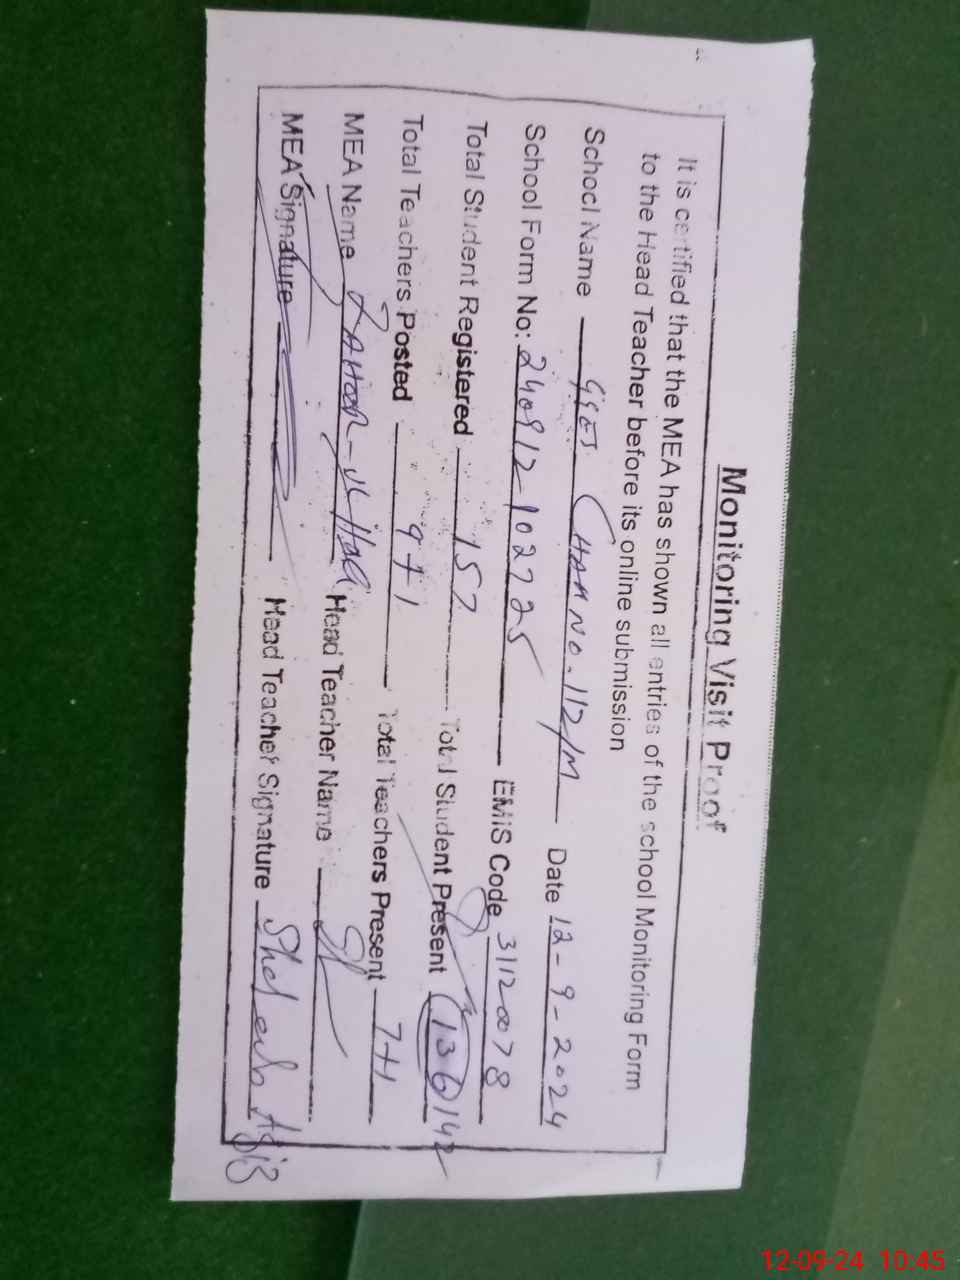 Monitoring Visit Proof
It is certified that the MEA has shown all entries of the school Monitoring Form
to the Head Teacher before its online submission
School Name GGES CHAK NO. 112/M Date 12-9-2024
School Form No: 240912-102725 EMIS Code 31120078
Total Student Registered 157 Total Student Present 136 142
Total Teachers Posted 9+1 Total Teachers Present 7+1
MEA Name Head Teacher Name
MEA Signature Head Teacher Signature
12-09-24 10:45